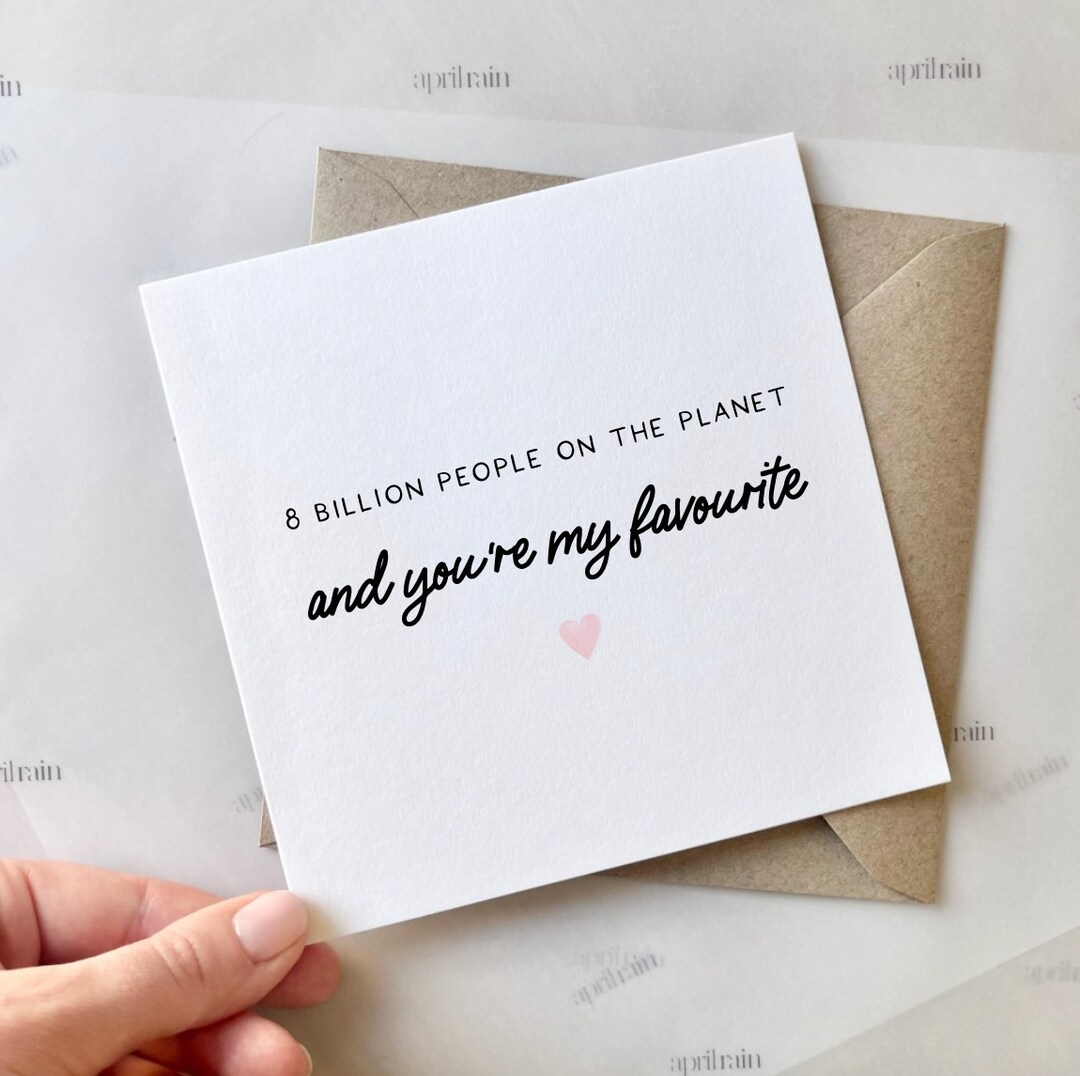 aprilrain
aprilrain
8 BILLION PEOPLE ON THE PLANET
and you're my favourite
rain
aprilrain
aprilrain